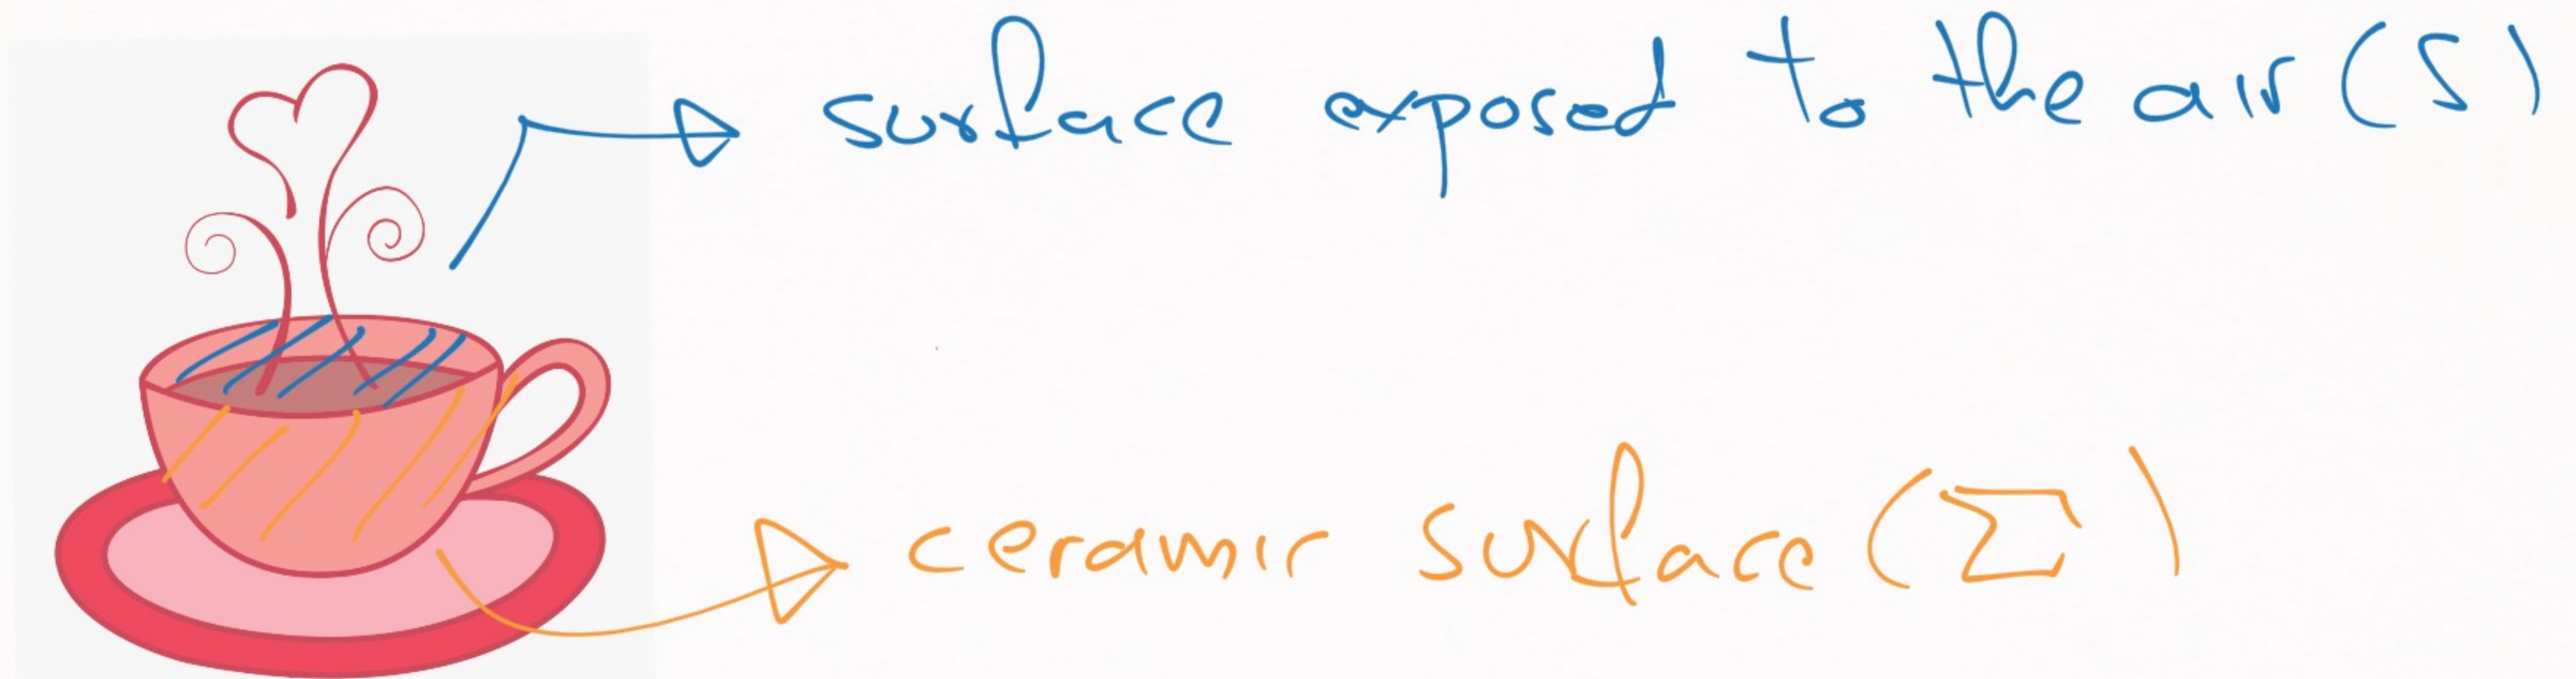 surface exposed to the air (S)
ceramic surface (Σ)